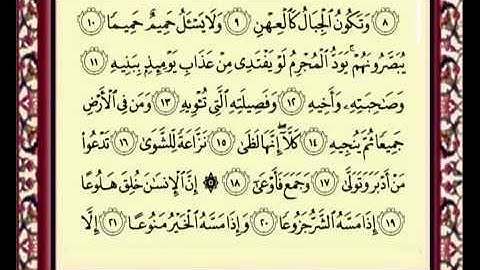 ٨ وَتَكُونُ ٱلْجِبَالُ كَٱلْعِهْنِ ٩ وَلَا يَسْـَٔلُ حَمِيمٌ حَمِيمًا ١٠
يُبَصَّرُونَهُمْ ۚ يَوَدُّ ٱلْمُجْرِمُ لَوْ يَفْتَدِى مِنْ عَذَابِ يَوْمِئِذٍۭ بِبَنِيهِ ١١
وَصَٰحِبَتِهِۦ وَأَخِيهِ ١٢ وَفَصِيلَتِهِ ٱلَّتِى تُـْٔوِيهِ ١٣ وَمَن فِى ٱلْأَرْضِ
جَمِيعًا ثُمَّ يُنجِيهِ ١٤ كَلَّآ ۖ إِنَّهَا لَظَىٰ ١٥ نَزَّاعَةً لِّلشَّوَىٰ ١٦ تَدْعُوا۟
مَنْ أَدْبَرَ وَتَوَلَّىٰ ١٧ وَجَمَعَ فَأَوْعَىٰٓ ١٨ ۞ إِنَّ ٱلْإِنسَٰنَ خُلِقَ هَلُوعًا
١٩ إِذَا مَسَّهُ ٱلشَّرُّ جَزُوعًا ٢٠ وَإِذَا مَسَّهُ ٱلْخَيْرُ مَنُوعًا ٢١ إِلَّا